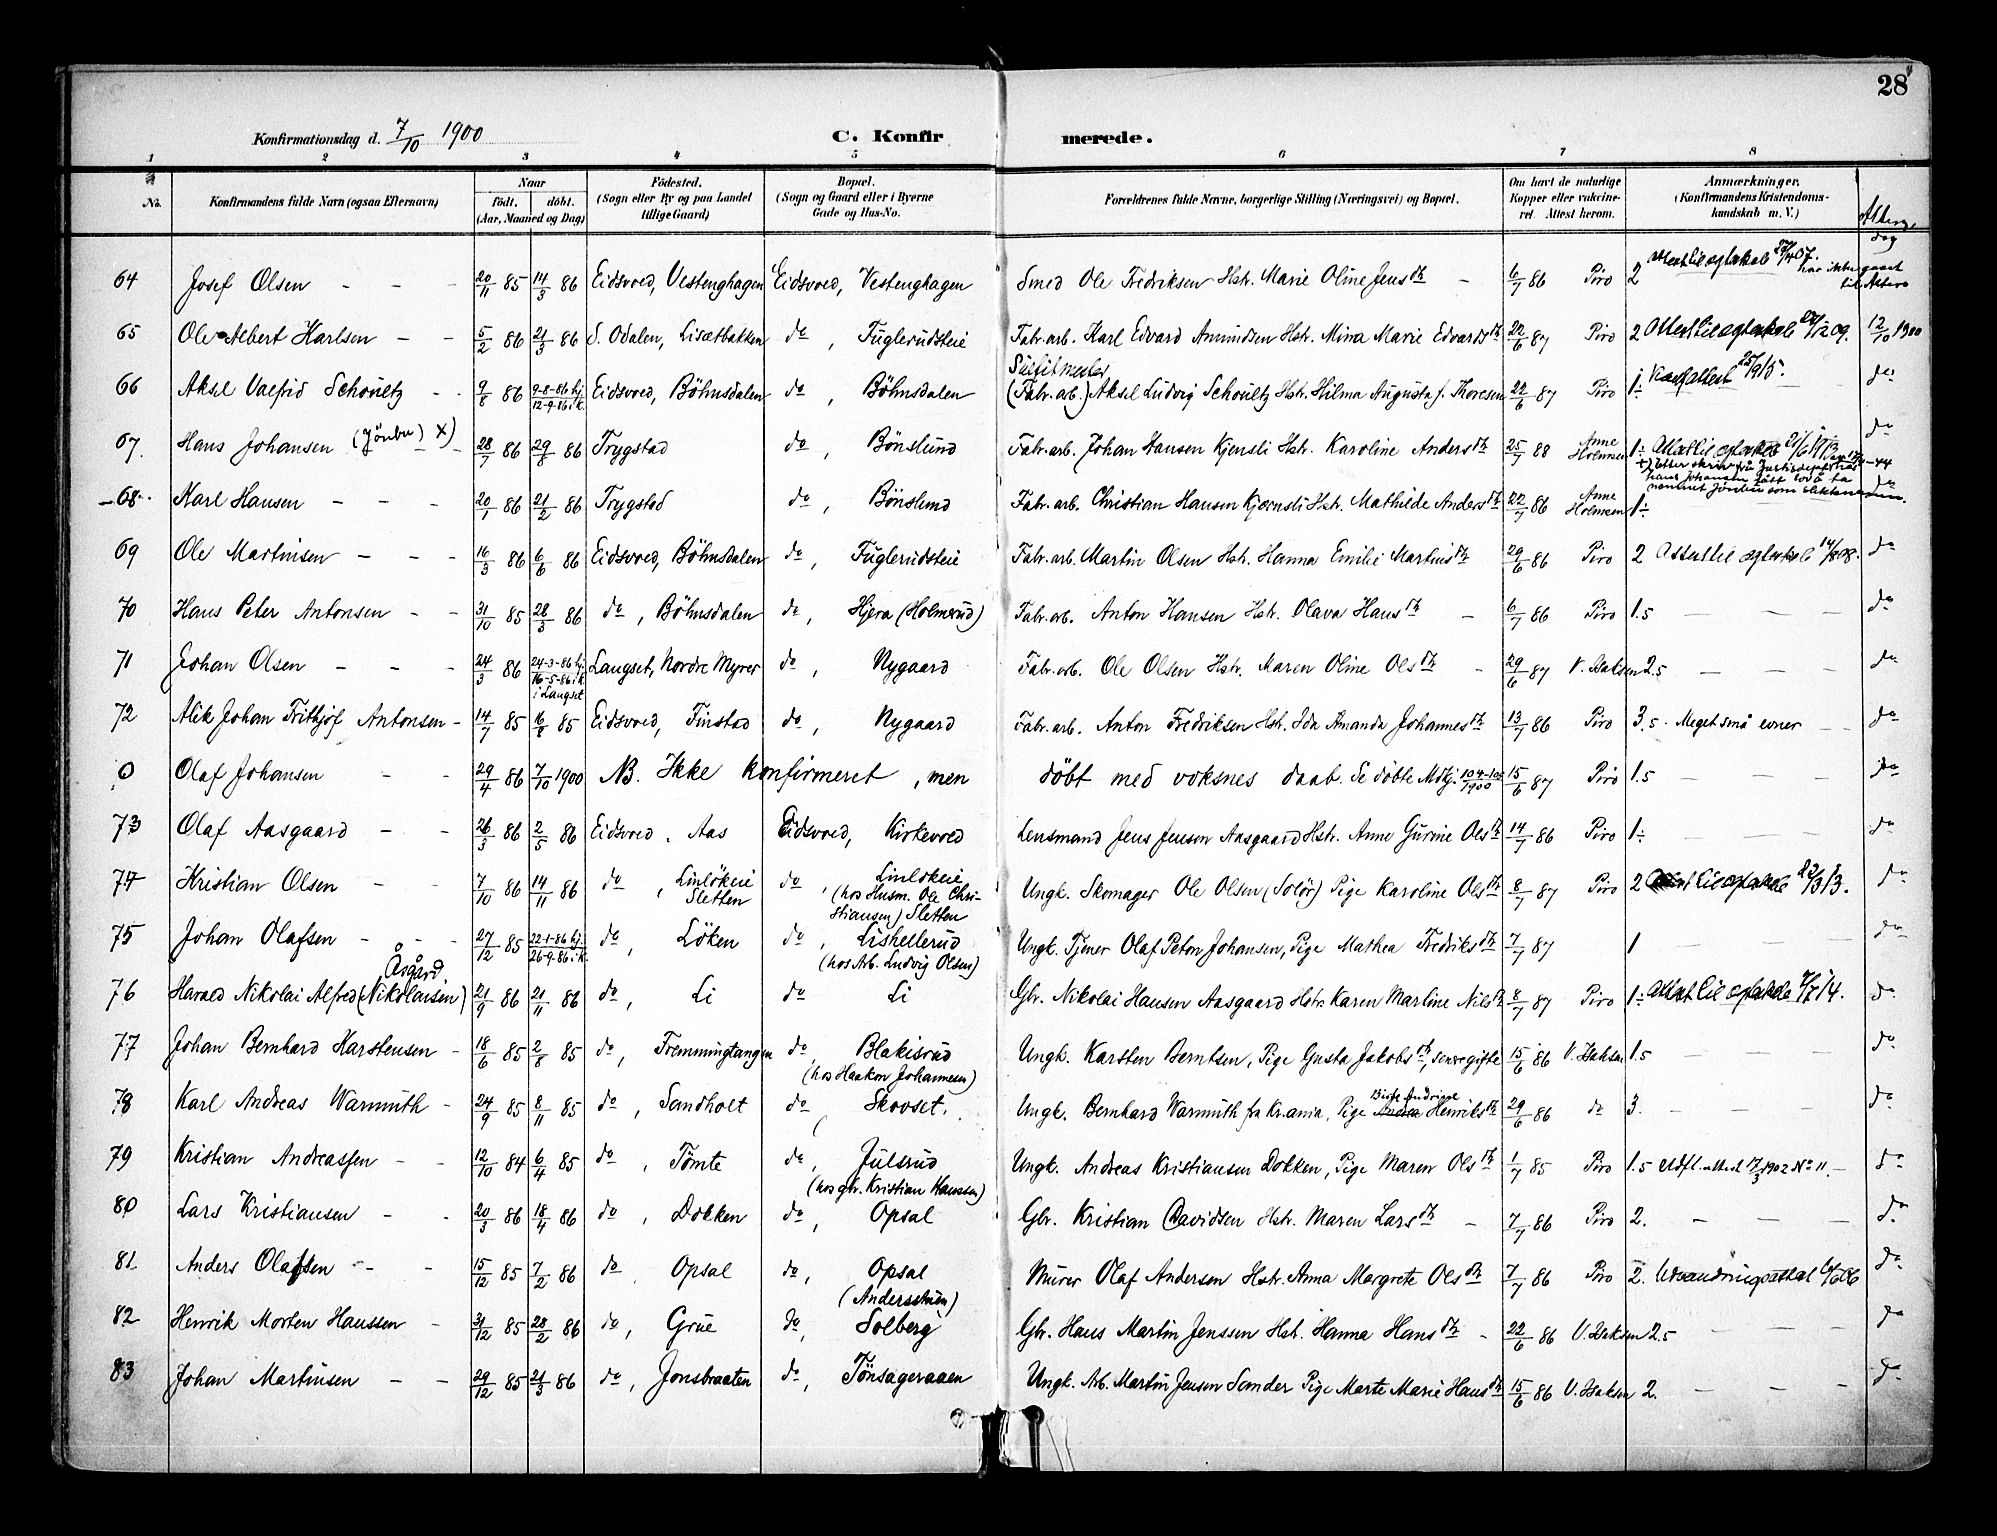 28
Konfirmationsdag d. 7/10 1900
C. Konfirmerede.
1 2 3 4 5 6 7 8
No. Konfirmandens fulde Navn (ogsaa Efternavn) Naar født. døbt. (Aar, Maaned og Dag) Fødested. (Sogn eller By og paa Landet tillige Gaard) Bopæl. (Sogn og Gaard eller i Byerne Gade og Hus-No. Forældrenes fulde Navne, borgerlige Stilling (Næringsvei) og Bopæl. Om havt de naturlige Kopper eller vaccineret. Attest herom. Anmærkninger. (Konfirmandens Kristendomskundskab m. V.) Alterg. dag
64 Josef Olsen - - - 20/11 85 14/3 86 Eidsvold, Vestenghagen Eidsvold, Vestenghagen Smed Ole Fredriksen Hstr. Marie Oline Jensdtr - 6/7 86 Piro 2 Attest til ægteskab 07. har ikke gaaet til Alters
65 Ole Albert Karlsen - - 5/2 86 21/3 86 S. Odalen, Lisætbakken do, Fuglerudsteie Fabr.arb. Karl Edvard Amundsen Hstr. Mina Marie Edvardsdtr 22/6 87 Piro 2 Attest til ægteskab 09. 12/10 1900
66 Aksel Valfrid Schoultz - - 9/8 86 9-8-86 hj. 12-9-86 i k. Eidsvold, Bøhnsdalen do, Bøhnsdalen Sulfitmester (Fabr. arb.) Aksel Ludvig Schoultz Hstr. Hilma Augusta f. Thoresen 22/6 87 Piro 1÷ Konf.attest 25/9 15. do
67. Hans Johansen (Jönbu) x) - 28/7 86 29/8 86 Trygstad do, Bønslund Fabr.arb. Johan Hansen Kjensli Hstr. Karoline Andersdtr 25/7 88 Anne Holmsen 1÷ Attest til ægteskab do
x) Etter skriv fra Justisdep.
Hans Johansen fått lov å ta
navnet Jönbu som slektsnavn.
68 Karl Hansen - - - 20/1 86 21/2 86 Trygstad do, Bønslund Fabr.arb. Christian Hansen Kjernsli Hstr. Mathilde Andersdtr 22/7 86 Anne Holmsen 1÷ do
69 Ole Martinsen - - - 16/3 86 6/6 86 Eidsvold, Bøhnsdalen do, Fuglerudsteie Fabr.arb. Martin Olsen Hstr. Hanna Emilie Martinsdtr 29/6 86 Piro 2 Attest til ægteskab 14/8 08. do
70 Hans Peter Antonsen - - 31/10 85 28/3 86 do, Bøhnsdalen do, Hjera (Holmerud) Fabr.arb. Anton Hansen Hstr. Olava Hansdtr - 6/7 86 Piro 1.5 - - - do
71 Johan Olsen - - - 24/3 86 24-3-86 hj. 16-5-86 i k. i Langset Langset, Nordre Myrer do, Nygaard Fabr.arb. Ole Olsen Hstr. Maren Oline Olsdtr - 29/6 87 V. Isaksen 2.5 - - - do
72 Alik Johan Frithjof Antonsen - 14/7 85 16/8 85 Eidsvold, Finstad do, Nygaard Fabr.arb. Anton Fredriksen Hstr. Ida Amanda Johannesdtr 13/7 86 Piro 3.5 - Meget små evner - - do
0 Olaf Johansen - - 29/4 86 7/10 1900 NB. Ikke konfirmeret, men døbt med voksnes daab. Se døbte Mdkj. 15/6 87 Piro 1.5 - - - do
73 Olaf Aasgaard - - 26/3 86 2/5 86 Eidsvold, Aas Eidsvold, Kirkevold Lensmand Jens Jenson Aasgaard Hstr. Anne Gurine Olsdtr 14/7 86 Piro 1÷ - - - do
74 Kristian Olsen - - 7/10 86 14/11 86 do, Linløkeie Sletten do, Linløkeie (hos Husm. Ole Christiansen) Sletten Ungk. Skomager Ole Olsen (Solør) Pige Karoline Olsdtr 8/7 87 Piro 2 Attest til ægteskab 13. do
75 Johan Olafsen - - - 27/12 85 22-1-86 hj. 26-9-86 i k. do, Løken do, Lishellerud (hos Arb. Ludvig Olsen) Ungk. Tjener Olaf Peton Johansen, Pige Mathea Fredriksdtr 7/7 87 1 - - - do
76 Harald Nikolai Alfred (Nikolaisen) Åsgård 21/9 86 21/11 86 do, Li do Li Gbr. Nikolai Hansen Aasgaard Hstr. Karen Marline Nilsdtr 8/7 87 Piro 1÷ Attest til ægteskab 14. do
77 Johan Bernhard Karstensen - 18/6 85 2/8 85 do, Fremmingtangen do, Blakisrud (hos Haakon Johannesen) Ungk. Karsten Berntsen, Pige Gusta Jakobsdtr, senere gifte 15/6 86 V. Isaksen 1.5 - - - do
78 Karl Andreas Warmuth - 24/9 85 8/11 85 do, Sandholt do, Skovset. Ungk. Bernhard Warmuth fra Kr.ania, Pige Andrine Henriksdtr 29/6 86 do 3. - - - do
79 Kristian Andreassen - - 12/10 84 6/4 85 do, Tømte do, Julsrud (hos gbr. Kristian Hanssen) Ungk. Andreas Kristiansen Dokken, Pige Maren Olsdtr 1/7 85 Piro 1.5 Udfl.attest 17/3 1902 No 11. - do
80 Lars Kristiansen - - 20/3 86 18/4 86 do, Dokken do, Opsal Gbr. Kristian Davidsen Hstr. Maren Larsdtr - 7/7 86 Piro 2. - - - do
81 Anders Olafsen - - 15/12 85 7/2 86 do, Opsal do, Opsal (Andersstuen) Murer Olaf Andersen Hstr. Anna Margrete Olsdtr 7/7 86 Piro 2. Udvandringsattest 06 do
82 Henrik Morten Hanssen - 31/12 85 28/2 86 do, Grue do, Solberg Gbr. Hans Martin Jenssen Hstr. Hanna Hansdtr - 22/6 86 V. Isaksen 2.5 - - - do
83 Johan Martinsen - - 29/12 85 21/3 86 do, Jonsbraaten do, Tønsageraaen Ungk. Arb. Martin Jensen Sander Pige Marte Marie Hansdtr 15/6 86 V. Isaksen 2. - - - do